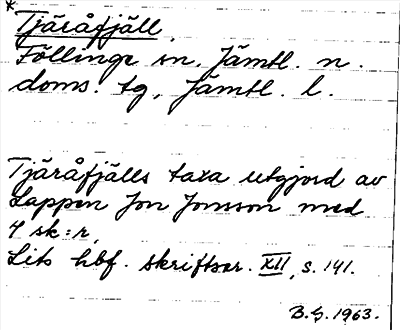 *
Tjäråfjäll,
Föllinge sn. Jämtl. n.
doms. tg, Jämtl. l.
Tjäråfjälls taxa utgjord av
Lappen Jon Jonsson med
4 sk:r,
Lits hbf. skriftser. XII, s. 141.
B.G. 1963.